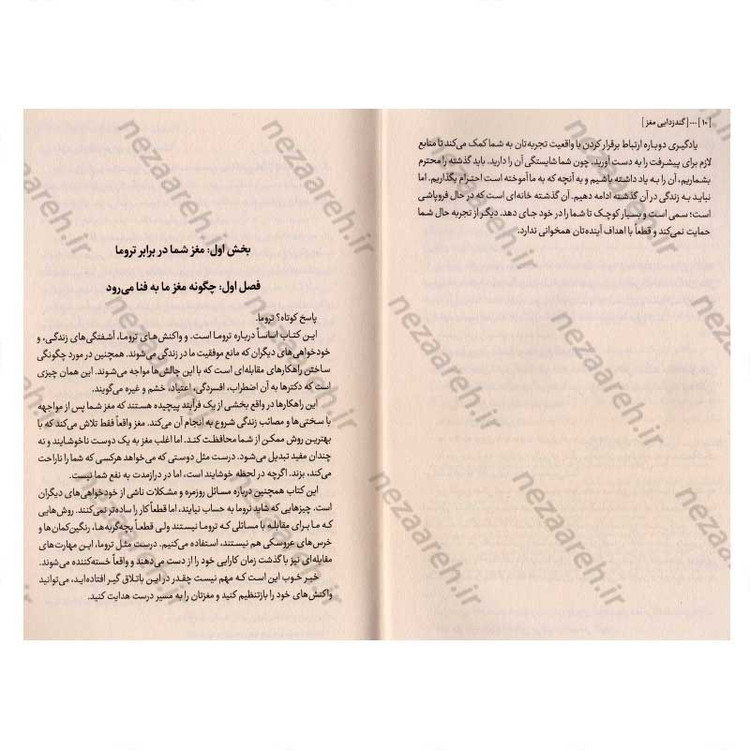 [۱۰] --- [گندزدایی مغز]
یادگیری دوباره ارتباط برقرار کردن با واقعیت تجربه‌تان به شما کمک می‌کند تا منابع
لازم برای پیشرفت را به دست آورید، چون شما شایستگی آن را دارید. باید گذشته را محترم
بشماریم، آن را به یاد داشته باشیم و به آنچه که به ما آموخته است احترام بگذاریم. اما
نباید به زندگی در آن گذشته ادامه دهیم. آن گذشته خانه‌ای است که در حال فروپاشی
است؛ سمی است و بسیار کوچک تا شما را در خود جای دهد. دیگر از تجربه حال شما
حمایت نمی‌کند و قطعاً با اهداف آینده‌تان همخوانی ندارد.
بخش اول: مغز شما در برابر تروما
فصل اول: چگونه مغز ما به فنا می‌رود
پاسخ کوتاه؟ تروما.
این کتاب اساساً درباره تروما است. و واکنش‌های تروما، آشفتگی‌های زندگی، و
خودخواهی‌های دیگران که مانع موفقیت ما در زندگی می‌شوند. همچنین در مورد چگونگی
ساختن راهکارهای مقابله‌ای که با این چالش‌ها مواجه می‌شوند. این همان چیزی
است که دکترها به آن اضطراب، افسردگی، اعتیاد، خشم و غیره می‌گویند.
این راهکارها در واقع بخشی از یک فرآیند پیچیده هستند که مغز شما پس از مواجهه
با سختی‌ها و مصائب زندگی شروع به انجام آن می‌کند. مغز واقعاً فقط تلاش می‌کند که با
بهترین روش ممکن از شما محافظت کند. اما اغلب مغز به یک دوست ناخوشایند و نه
چندان مفید تبدیل می‌شود. درست مثل دوستی که می‌خواهد هرکسی که شما را ناراحت
می‌کند، بزند. اگرچه در لحظه خوشایند است، اما در درازمدت به نفع شما نیست.
این کتاب همچنین درباره مسائل روزمره و مشکلات ناشی از خودخواهی‌های دیگران
است. چیزهایی که شاید تروما به حساب نیایند، اما قطعاً کار را ساده‌تر نمی‌کنند. روش‌هایی
که ما برای مقابله با مسائلی که تروما نیستند ولی قطعاً بچه‌گربه‌ها، رنگین‌کمان‌ها و
خرس‌های عروسکی هم نیستند، استفاده می‌کنیم. درست مثل تروما، این مهارت‌های
مقابله‌ای نیز با گذشت زمان کارایی خود را از دست می‌دهند و واقعاً خسته‌کننده می‌شوند.
خبر خوب این است که مهم نیست چقدر در این باتلاق گیر افتاده‌اید، می‌توانید
واکنش‌های خود را بازتنظیم کنید و مغزتان را به مسیر درست هدایت کنید.
nezaareh.ir